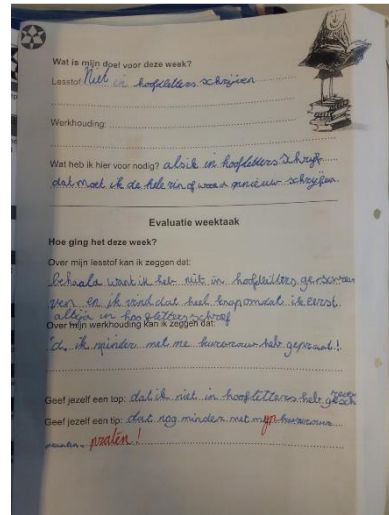 Wat is mijn doel voor deze week?
Lesstof: Niet in hoofdletters schrijven
Werkhouding:
Wat heb ik hier voor nodig? als ik in hoofdletters schrijf
dat moet ik de hele zin of woord opnieuw schrijfen.
Evaluatie weektaak
Hoe ging het deze week?
Over mijn lesstof kan ik zeggen dat:
behaald want ik heb niet in
ven en ik vind dat heel knap omdat ik eerst
altijd in hoofdletters schreef
Over mijn werkhouding kan ik zeggen dat:
ik minder met me heb gepraat!
Geef jezelf een top: dat ik niet in hoofdletters heb
Geef jezelf een tip: dat nog minder met mijn
praten!